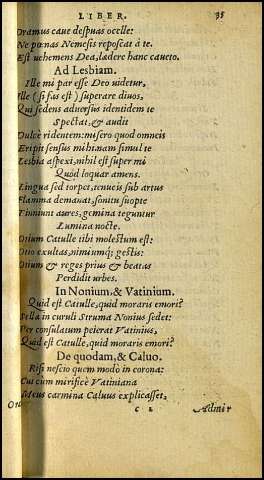 LIBER. 35
Oramus caue despuas ocelle:
Ne pœnas Nemesis reposcat à te.
Est uehemens Dea, lædere hanc caueto.
Ad Lesbiam.
Ille mi par esse Deo uidetur,
Ille (si fas est) superare diuos,
Qui sedens aduersus identidem te
Spectat, & audit
Dulcè ridentem: misero quod omneis
Eripit sensus mihi: nam simul te
Lesbia aspexi, nihil est super mi
Quod loquar amens.
Lingua sed torpet, teneuis sub artus
Flamma demanat, sonitu suopte
Tinniunt aures, gemina teguntur
Lumina nocte.
Otium Catulle tibi molestum est:
Otio exultas, nimiumq́; gestis:
Otium & reges prius & beatas
Perdidit urbes.
In Nonium, & Vatinium.
Quid est Catulle, quid moraris emori?
Sella in curuli Struma Nonius sedet:
Per consulatum peierat Vatinius,
Quid est Catulle, quid moraris emori?
De quodam, & Caluo.
Risi nescio quem modò in corona:
Cui cum mirificè Vatiniana
Meus carmina Caluus explicasset,
Admir